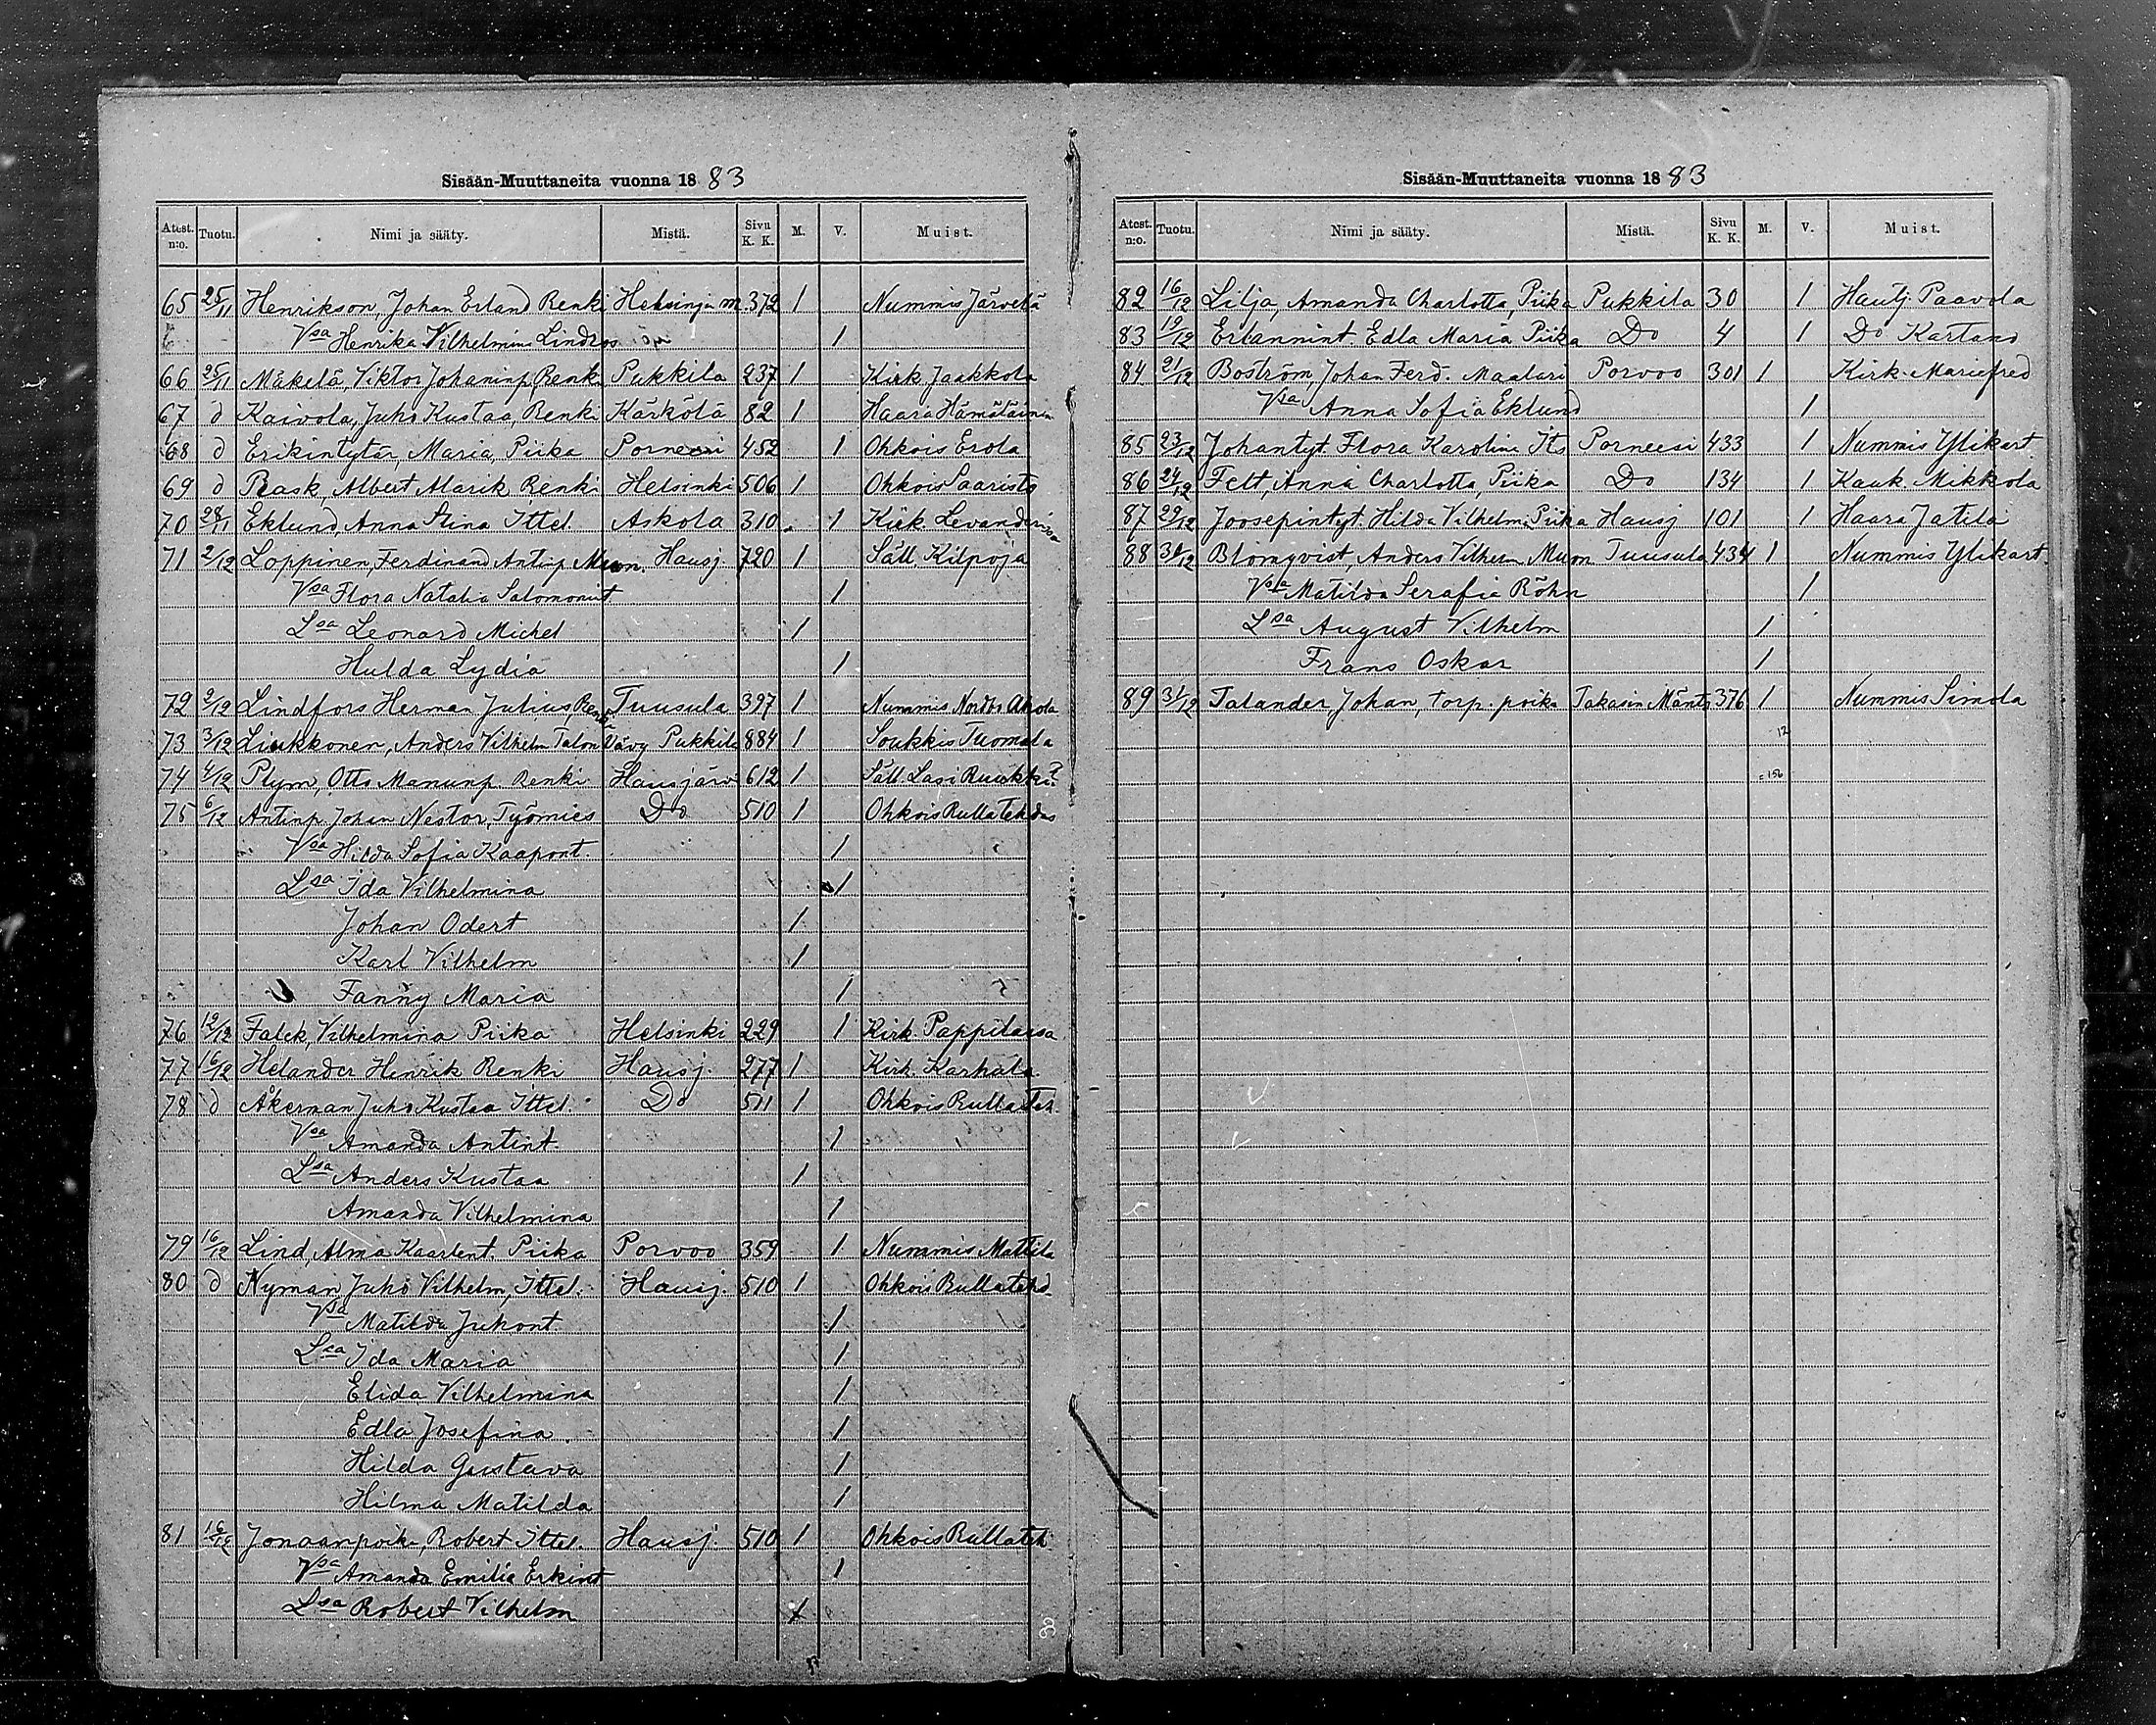 Sisään-Muuttaneita vuonna 1883
Atest. n:o. Tuotu. Nimi ja sääty. Mistä. Sivu K. K. M. V. Muist.
65 25/11 Henrikson, Johan Erland Renki Helsingin m. 372 1 Nummis Järvelä
Vsa Henrika Vilhelmina Lindros 1
66 25/11 Mäkelä, Viktor Johaninp, Renki Pukkila 237 1 Kirk. Jaakkola
67 d Kaivola, Juho Kustaa, Renki Kärkölä 82 1 Haara Hämäläinen
68 d Erikintytär, Maria, Piika Porneesi 452 1 Ohkois Erola
69 d Rask, Albert Alarik Renki Helsinki 506 1 Ohkois Saaristo
70 28/11 Eklund, Anna Stina Ittel. Askola 310 1 Kirk. Levander
71 2/12 Loppinen, Ferdinand Antinp Muon. Hausj. 720 1 Säll. Kilpoja
Vsa Flora Natalia Salomonint 1
Lsa Leonard Michel 1
Hulda Lydia 1
72 2/12 Lindfors Herman Julius, Renki Tuusula 397 1 Nummis Nordbo Ahola
73 3/12 Liukkonen, Anders Vilhelm Talon Vävy Pukkila 884 1 Soukkis Tuomala
74 4/12 Plym, Otto Manunp. Renki Hausjärv 612 1 Säll. Lasi Ruukki?
75 6/12 Antinp. Johan Nestor, Työmies Do 510 1 Ohkois Rulla Tehdas
Vsa Hilda Sofia Kaapont. 1
Lsa Ida Vilhelmina 1
Johan Odert 1
Karl Vilhelm 1
Fanny Maria 1
76 12/12 Falck, Vilhelmina Piika Helsinki 229 1 Kirk. Pappilassa
77 16/12 Helander Henrik Renki Hausj. 277 1 Kirk. Karhula
78 d Åkerman Juho Kustaa Ittel. Do 511 1 Ohkois Rulla Teh.
Vsa Amanda Antint 1
Lsa Anders Kustaa 1
Amanda Vilhelmina 1
79 16/12 Lind, Alma Kaarlent. Piika Porvoo 359 1 Nummis Mattila
80 d Nyman, Juho Vilhelm, Ittel. Hausj. 510 1 Ohkois Rullatehd
Vsa Matilda Juhont 1
Lsa Ida Maria 1
Elida Vilhelmina 1
Edla Josefina 1
Hilda Gustava 1
Hilma Matilda 1
81 16/12 Jonaanpoika, Robert Ittel. Hausj. 510 1 Ohkois Rullateh
Vsa Amanda Emilia Erkint 1
Lsa Robert Vilhelm 1
Sisään-Muuttaneita vuonna 1883
Atest. n:o. Tuotu. Nimi ja sääty. Mistä. Sivu K. K. M. V. Muist.
82 16/12 Lilja, Amanda Charlotta, Piika Pukkila 30 1 Hautj. Paavola
83 19/12 Erlannint. Edla Maria Piika Do 4 1 Do Kartano
84 21/12 Boström, Johan Ferd. Maalari Porvoo 301 1 Kirk. Mariefred
Vsa Anna Sofia Eklund 1
85 23/12 Johantyt. Flora Karolina Its Porneesi 433 1 Nummis Ylikart
86 24/12 Felt, Anna Charlotta, Piika Do 134 1 Kauk. Mikkola
87 29/12 Joosepintyt. Hilda Vilhelm. Piika Hausj 101 1 Haara Jatila
88 31/12 Blomqvist, Anders Vilhelm Muon Tuusula 434 1 Nummis Ylikart.
Vsa Matilda Serafia Röhn 1
Lsa August Vilhelm 1
Frans Oskar 1
89 31/12 Talander, Johan, torp. poika Takasin Mänts 376 1 Nummis Simola
12
=156